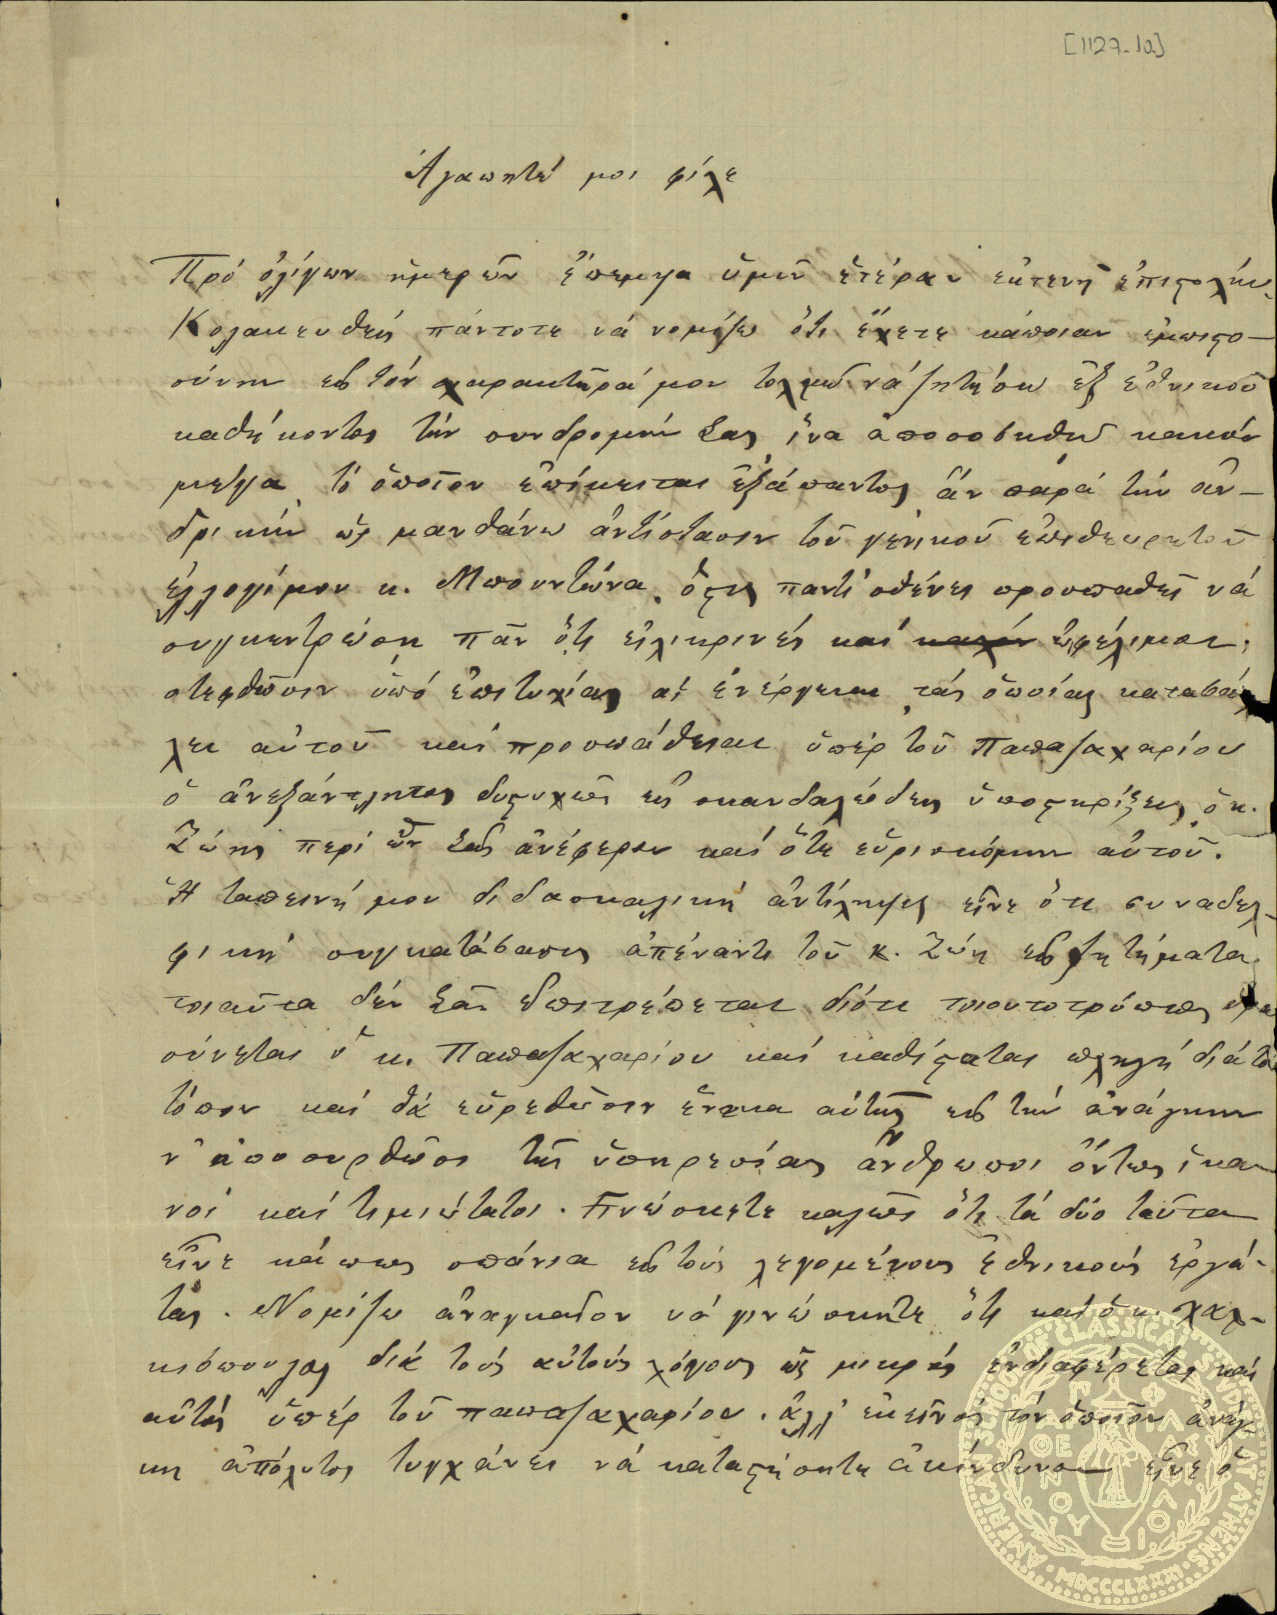 [1127-10]
Ἀγαπητέ μοι φίλε
Πρό ὀλίγων ἡμερῶν ἔπεμψα ὑμῖν ἑτέραν ἐκτενῆ ἐπιστολήν.
Κολακευθείς πάντοτε νά νομίζω ὅτι ἔχετε κάποιαν ἐμπιστο-
σύνην εἰς τόν χαρακτῆρά μου τολμῶ νά ζητήσω ἐξ ἐθνικοῦ
καθήκοντος τήν συνδρομήν Σας ἵνα ἀποσοβηθῇ κακόν
μέγα τό ὁποῖον ἐπίκειται ἐξάπαντος ἄν παρά τήν ἀν-
δρικήν ὡς μανθάνω ἀντίστασιν τοῦ γενικοῦ ἐπιθεωρητοῦ
ἐλλογίμου κ. Μπουντώνα, ὅστις παντί σθένει προσπαθεῖ νά
συγκεντρώσῃ πᾶν ὅτι εἰλικρινές καί ὠφέλιμον,
στεφθῶσιν ὑπό ἐπιτυχίας αἱ ἐνέργειαι τάς ὁποίας καταβάλ
λει αὐτοῦ καί προσπάθειαι ὑπέρ τοῦ Παπαζαχαρίου
ὁ ἀνεξάντλητος δυστυχῶς εἰς σκανδαλώδεις ὑποστηρίξεις ὁ κ.
Ζώης περί ὧν Σᾶς ἀνέφερον καί ὅτε εὑρισκόμην αὐτοῦ.
Ἡ ταπεινή μου διδασκαλική ἀντίληψις εἶνε ὅτι συναδελ-
φική συγκατάβασις ἀπέναντι τοῦ κ. Ζώη εἰς ζητήματα
τοιαῦτα δέν Σᾶς ἐπιτρέπεται διότι τοιουτοτρόπως
σύνεται ὁ κ. Παπαζαχαρίου καί καθίσταται πληγή διά τόν
τόπον καί θά εὑρεθῶσιν ἕνεκα αὐτῆς εἰς τήν ἀνάγκην
ν' ἀποσυρθῶσι τῆς ὑπηρεσίας ἄνθρωποι ὄντως ἱκα
νοί καί τιμιώτατοι. Γινώσκετε καλῶς ὅτι τά δύο ταῦτα
εἶνε κάπως σπάνια εἰς τούς λεγομένους ἐθνικούς ἐργά-
τας. Νομίζω ἀναγκαῖον νά γινώσκητε ὅτι καί ὁ κ. Χαλ-
κιόπουλος διά τούς αὐτούς λόγους ὡς μικρός ἐνδιαφέρεται καί
αὐτός ὑπέρ τοῦ παπαζαχαρίου. ἀλλ' ἐκεῖνος τόν ὁποῖον ἀνάγ-
κη ἀπόλυτος τυγχάνει νά καταστήσητε ἀκίνδυνον εἶνε ὁ
AMERICAN SCHOOL OF CLASSICAL STUDIES AT ATHENS · MDCCCLXXXI